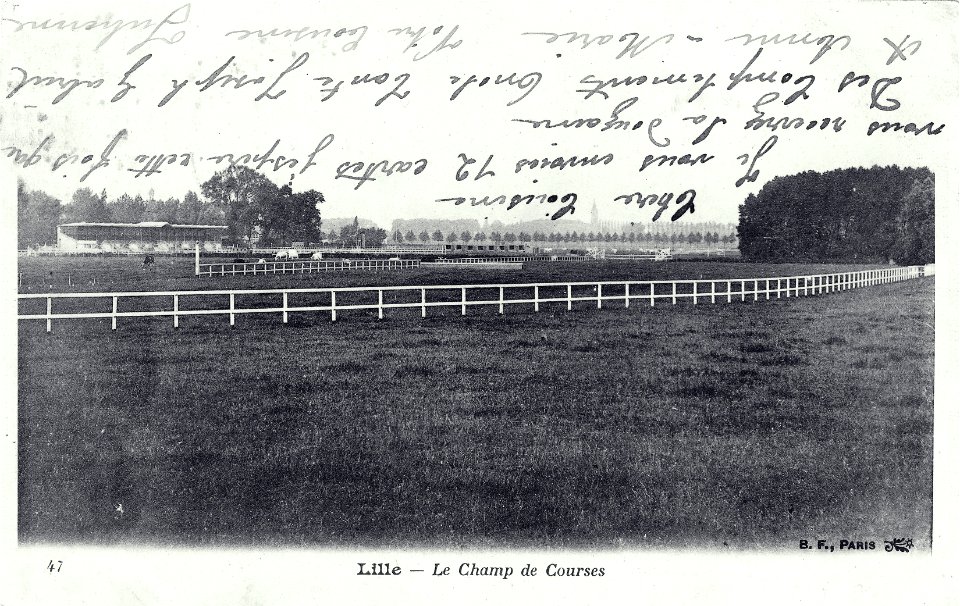 Chère Cousine
Je vous envoies 12 cartes j'espère cette fois que
vous recevrez la Douzaine
Des Compliments Oncle Tante Joseph Gabriel
& Anna - Marie Votre Cousine
B. F., PARIS
47
Lille — Le Champ de Courses